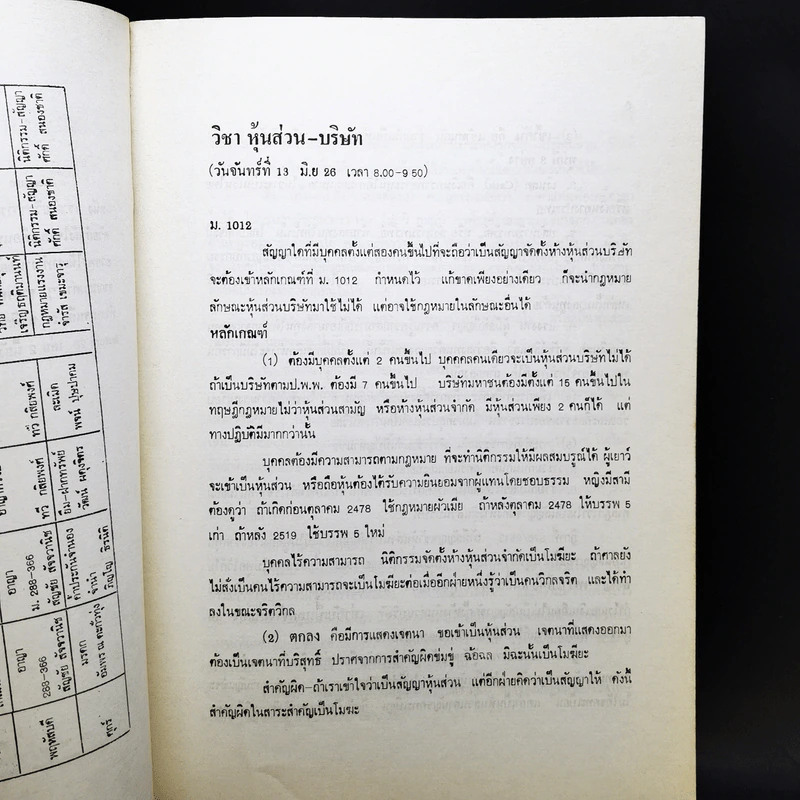 วิชา หุ้นส่วน-บริษัท
(วันจันทร์ที่ 13 มิ.ย 26 เวลา 8.00-9 50)
ม. 1012
สัญญาใดที่มีบุคคลตั้งแต่สองคนขึ้นไปที่จะถือว่าเป็นสัญญาจัดตั้งห้างหุ้นส่วนบริษัท
จะต้องเข้าหลักเกณฑ์ที่ ม. 1012 กำหนดไว้ แก้ขาดเพียงอย่างเดียว ก็จะนำกฎหมาย
ลักษณะหุ้นส่วนบริษัทมาใช้ไม่ได้ แต่อาจใช้กฎหมายในลักษณะอื่นได้
หลักเกณฑ์
(1) ต้องมีบุคคลตั้งแต่ 2 คนขึ้นไป บุคคลคนเดียวจะเป็นหุ้นส่วนบริษัทไม่ได้
ถ้าเป็นบริษัทตามป.พ.พ. ต้องมี 7 คนขึ้นไป บริษัทมหาชนต้องมีตั้งแต่ 15 คนขึ้นไปใน
ทฤษฎีกฎหมายไม่ว่าหุ้นส่วนสามัญ หรือห้างหุ้นส่วนจำกัด มีหุ้นส่วนเพียง 2 คนก็ได้ แต่
ทางปฏิบัติมีมากกว่านั้น
บุคคลต้องมีความสามารถตามกฎหมาย ที่จะทำนิติกรรมให้มีผลสมบรูณ์ได้ ผู้เยาว์
จะเข้าเป็นหุ้นส่วน หรือถือหุ้นต้องได้รับความยินยอมจากผู้แทนโดยชอบธรรม หญิงมีสามี
ต้องดูว่า ถ้าเกิดก่อนตุลาคม 2478 ใช้กฎหมายผัวเมีย ถ้าหลังตุลาคม 2478 ให้บรรพ 5
เก่า ถ้าหลัง 2519 ใช้บรรพ 5 ใหม่
บุคคลไร้ความสามารถ นิติกรรมจัดตั้งห้างหุ้นส่วนจำกัดเป็นโมฆียะ ถ้าศาลยัง
ไม่สั่งเป็นคนไร้ความสามารถจะเป็นโมฆียะต่อเมื่ออีกฝ่ายหนึ่งรู้ว่าเป็นคนวิกลจริต และได้ทำ
ลงในขณะจริตวิกล
(2) ตกลง คือมีการแสดงเจตนา ขอเข้าเป็นหุ้นส่วน เจตนาที่แสดงออกมา
ต้องเป็นเจตนาที่บริสุทธิ์ ปราศจากการสำคัญผิดข่มขู่ ฉ้อฉล มิฉะนั้นเป็นโมฆียะ
สำคัญผิด-ถ้าเราเข้าใจว่าเป็นสัญญาหุ้นส่วน แต่อีกฝ่ายคิดว่าเป็นสัญญาให้ ดังนี้
สำคัญผิดในสาระสำคัญเป็นโมฆะ
นิติกรรม-สัญญา
ศักดิ์ สนองชาติ
นิติกรรม-สัญญา
ศักดิ์ สนองชาติ
กฎหมายแรงงาน
ละเมิด
ทวี กสิยพงศ์
ทวี กสิยพงศ์
ยืม-ฝากทรัพย์
อาญา
ม. 288-366
สัญชัย สัจจวานิช
ค้ำประกันจำนอง
จำนำ
อาญา
288-366
สัญชัย สัจจวานิช
มรดก
พฤหัสบดี
ศุกร์